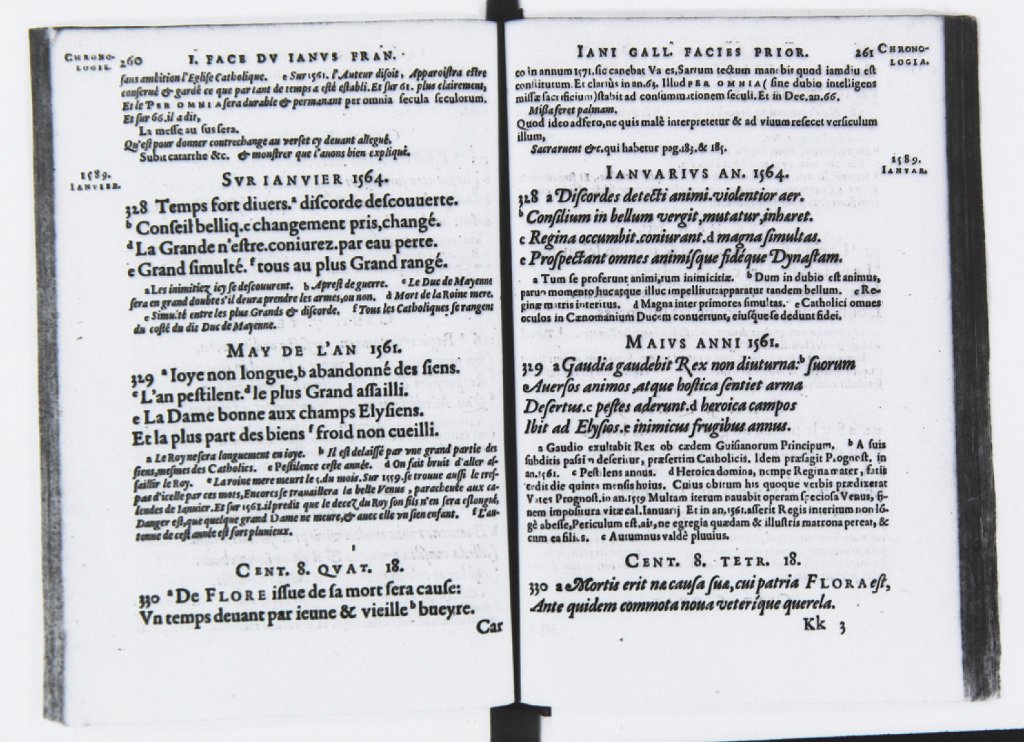 CHRONO-
LOGIE.
260
I. FACE DV IANVS FRAN.
sans ambition l'Eglise Catholique. e Sur 1561. l'Auteur disoit, Apparoistra estre
conserué & gardé ce que par tant de temps a esté establi. Et sur 61. plus clairement,
Et le PER OMNIA sera durable & permanant per omnia secula seculorum.
Et sur 66. il a dit,
La messe au sus sera.
Qu'est pour donner contrechange au verset cy deuant allegué,
Subit catarrhe &c. & monstrer que l'auons bien expliqué.
1589.
IANVIER.
SVR IANVIER 1564.
328 Temps fort diuers. a discorde descouuerte.
b Conseil belliq. c changement pris, changé.
d La Grande n'estre. coniurez. par eau perte.
e Grand simulté. f tous au plus Grand rangé.
a Les inimitiez icy se descouurent. b Aprest de guerre. c Le Duc de Mayenne
sera en grand doubte s'il deura prendre les armes, ou non. d Mort de la Roine mere.
e Simulté entre les plus Grands & discorde. f Tous les Catholiques se rangent
du costé du dis Duc de Mayenne.
MAY DE L'AN 1561.
329 a Ioye non longue, b abandonné des siens.
c L'an pestilent. d le plus Grand assailli.
e La Dame bonne aux champs Elysiens.
Et la plus part des biens f froid non cueilli.
a Le Roy ne sera longuement en ioye. b Il est delaissé par vne grand partie des
siens, mesmes des Catholics. c Pestilence ceste année. d On fait bruit d'aller as-
saillir le Roy. e La roine mere meurt le 5. du mois. Sur 1559. se trouue aussi le tres-
pas d'icelle par ces mots, Encores se trauaillera la belle Venus, paracheute aux ca-
lendes de Ianuier. Et sur 1561. il predit que le decez du Roy son fils n'en sera eslongné,
Danger est, que quelque grand Dame ne meure, & auec elle vn sien enfant. f L'au-
tonne de cest année est fort pluuieux.
CENT. 8. QVAT. 18.
330 a De FLORE issue de sa mort sera cause:
Vn temps deuant par ieune & vieille b bueyre.
Car
IANI GALL. FACIES PRIOR.
261
CHRONO-
LOGIA.
co in annum 1571. sic canebat Va es, Sartum tectum mane bit quod iamdiu est
constitutum. Et clariùs in an. 63. Illud PER OMNIA ( sine dubio intelligens
missæ sacrificium) stabit ad consummationem seculi. Et in Dec. an. 66.
Missa feret palmam.
Quod ideo adfero, ne quis malè interpretetur & ad viuum resecet versiculum
illum,
Sacraruent &c. qui habetur pag. 183. & 185.
1589.
IANVAR.
IANVARIVS AN. 1564.
328 a Discordes detecti animi. violentior aer.
b Consilium in bellum vergit, mutatur, inhæret.
c Regina occumbit. coniurant. d magna simultas.
e Prospectant omnes animisque fideque Dynastam.
a Tum se proferunt animi, tum inimicitiæ. b Dum in dubio est animus,
paruo momento huc atque illuc impellitur: apparatur tandem bellum. c Re-
ginæ matris interitus. d Magna inter primores simultas. e Catholici omnes
oculos in Cænomanium Ducem conuertunt, eiusque se dedunt fidei.
MAIVS ANNI 1561.
329 a Gaudia gaudebit Rex non diuturna: b suorum
Auersos animos, atque hostica sentiet arma
Desertus. c pestes aderunt. d heroica campos
Ibit ad Elysios. e inimicus frugibus annus.
a Gaudio exultabit Rex ob cædem Guisianorum Principum. b A suis
subditis passim deseritur, præsertim Catholicis. Idem præsagit Prognost. in
an. 1561. c Pestilens annus. d Heroica domina, nempe Regina mater, fatis
cedit die quinta mensis huius. Cuius obitum his quoque verbis prædixerat
Vates Prognost. in an. 1559 Multam iterum nauabit operam speciosa Venus, fi-
nem impositura vitæ cal. Ianuarij. Et in an. 1561. asserit Regis interitum non lõ-
gè abesse, Periculum est, ait, ne egregia quædam & illustris matrona pereat, &
cum ea filius. e Autumnus valdè pluuius.
CENT. 8. TETR. 18.
330 a Mortis erit næ causa suæ, cui patria FLORA est,
Ante quidem commota noua veterique querela.
Kk 3